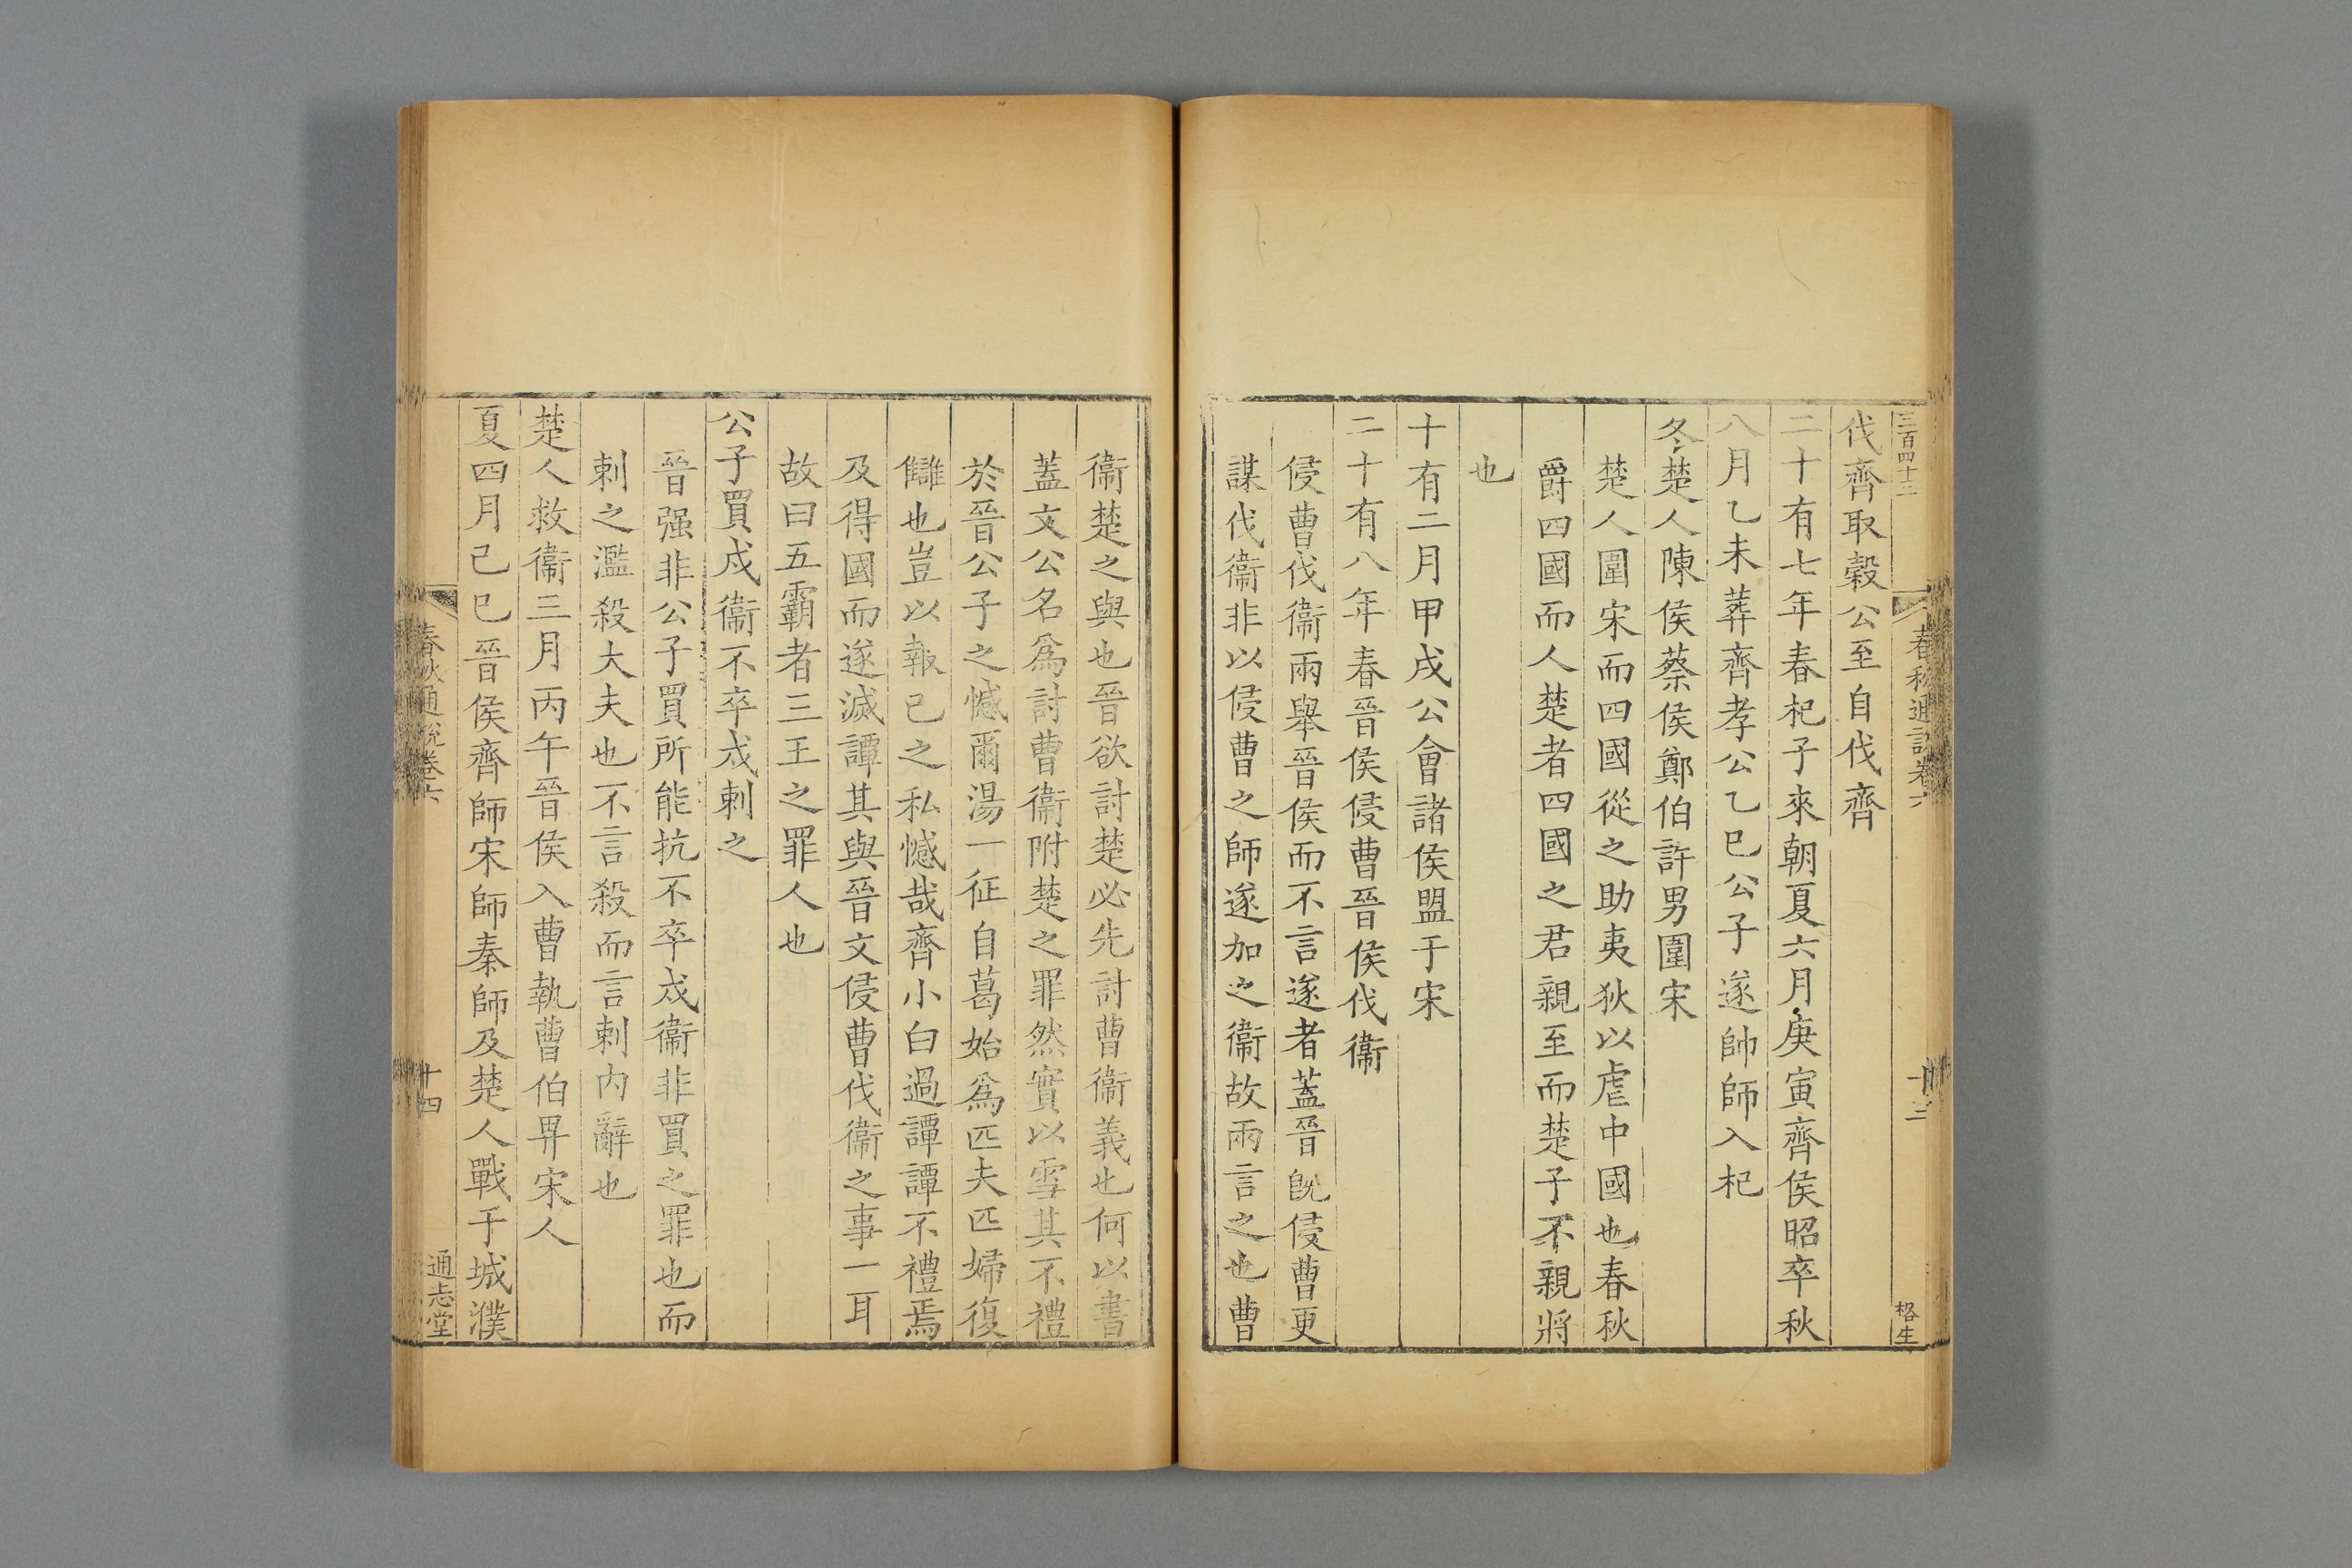 三百四十三
春秋通説卷六
十三
格生
伐齊取穀公至自伐齊
二十有七年春杞子來朝夏六月庚寅齊侯昭卒秋
八月乙未葬齊孝公乙巳公子遂帥師入杞
冬楚人陳侯蔡侯鄭伯許男圍宋
楚人圍宋而四國從之助夷狄以虐中國也春秋
爵四國而人楚者四國之君親至而楚子不親將
也
十有二月甲戌公會諸侯盟于宋
二十有八年春晉侯侵曹晉侯伐衞
侵曹伐衞兩舉晉侯而不言遂者蓋晉旣侵曹更
謀伐衞非以侵曹之師遂加之衞故兩言之也曹
衞楚之與也晉欲討楚必先討曹衞義也何以書
蓋文公名爲討曹衞附楚之罪然實以雪其不禮
於晉公子之憾爾湯一征自葛始爲匹夫匹婦復
讎也豈以報已之私憾哉齊小白過譚譚不禮焉
及得國而遂滅譚其與晉文侵曹伐衞之事一耳
故曰五霸者三王之罪人也
公子買戍衞不卒戍刺之
晉强非公子買所能抗不卒戍衞非買之罪也而
刺之濫殺大夫也不言殺而言刺内辭也
楚人救衞三月丙午晉侯入曹執曹伯畀宋人
夏四月己巳晉侯齊師宋師秦師及楚人戰于城濮
春秋通説卷六
十四
通志堂